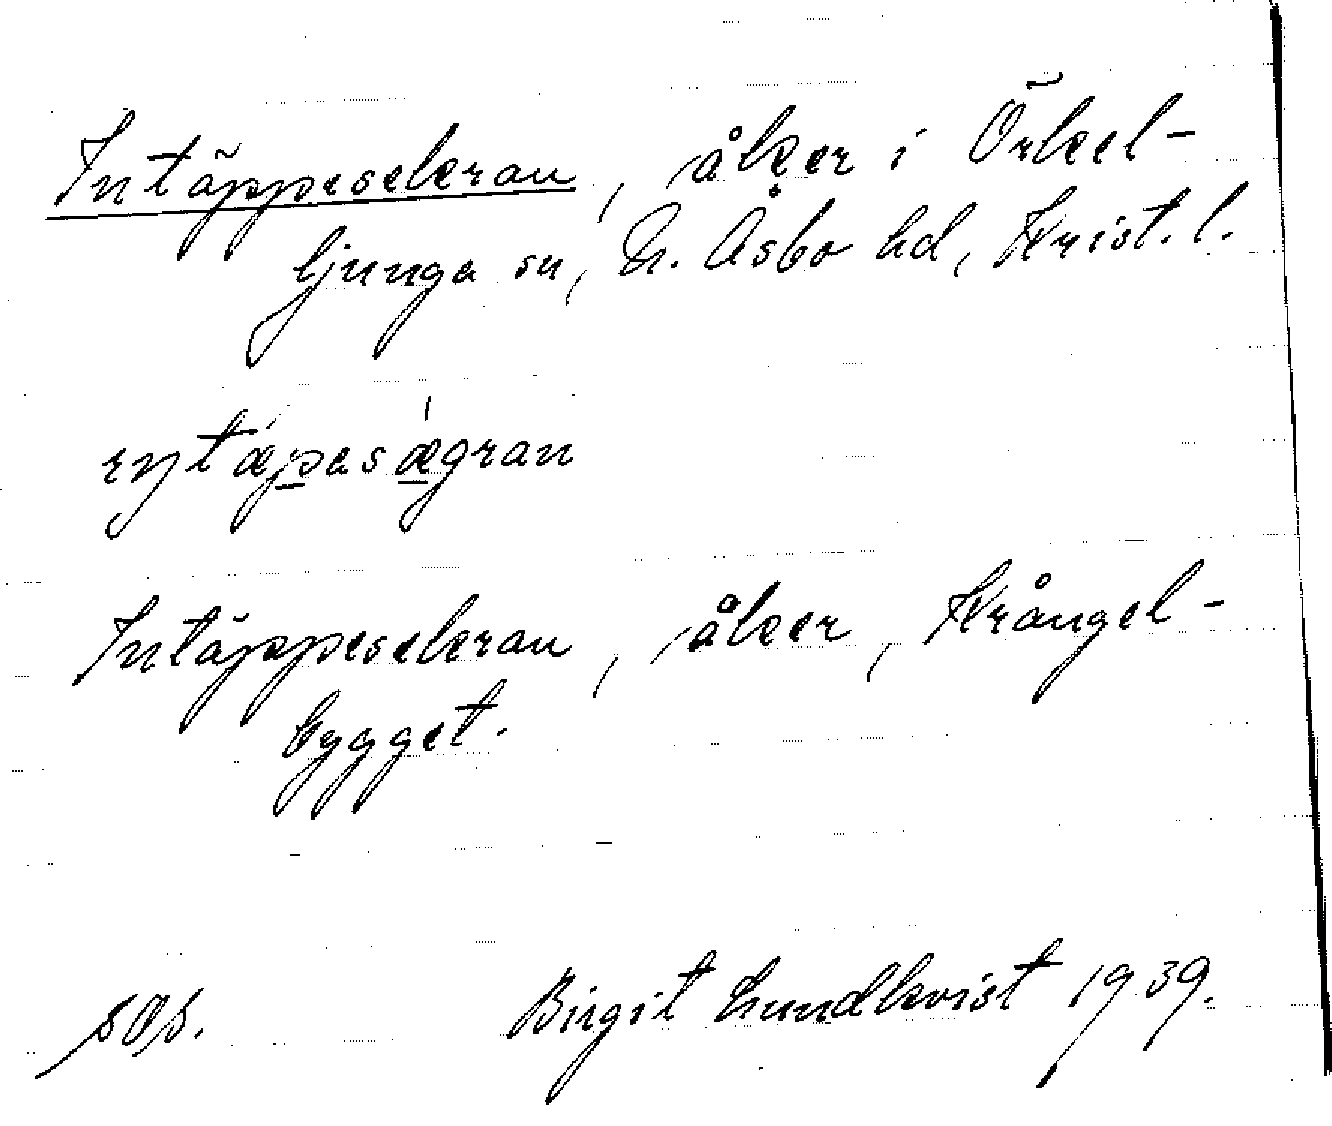 Intäppesekran, åker i Örkel-
ljunga sn, N. Åsbo hd, Krist. l.
Intäppesekran, åker, Krångel-
bygget.
sas. Birgit Lundkvist 1939.